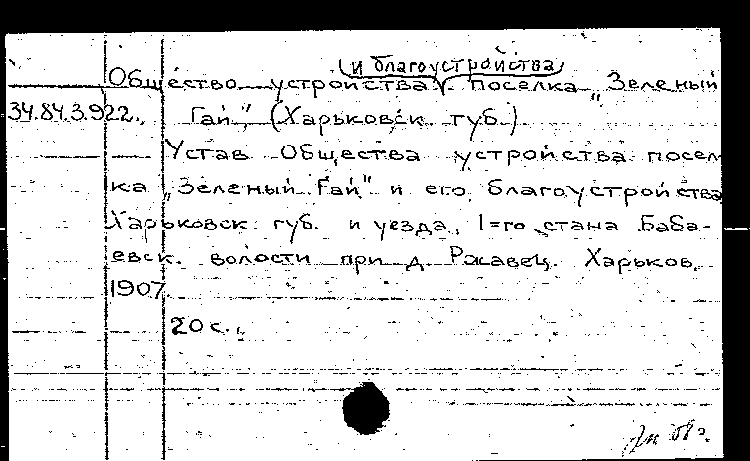 (и благоустройства)
Общество устройства поселка „Зеленый
34.84.3.922. Гай“, (Харьковск. губ.)
Устав Общества устройства посел
ка „Зеленый Гай“ и его благоустройства
Харьковск. губ. и уезда, 1=го стана Баба-
евск. волости при д. Ржавец. Харьков.
1907.
20 с.